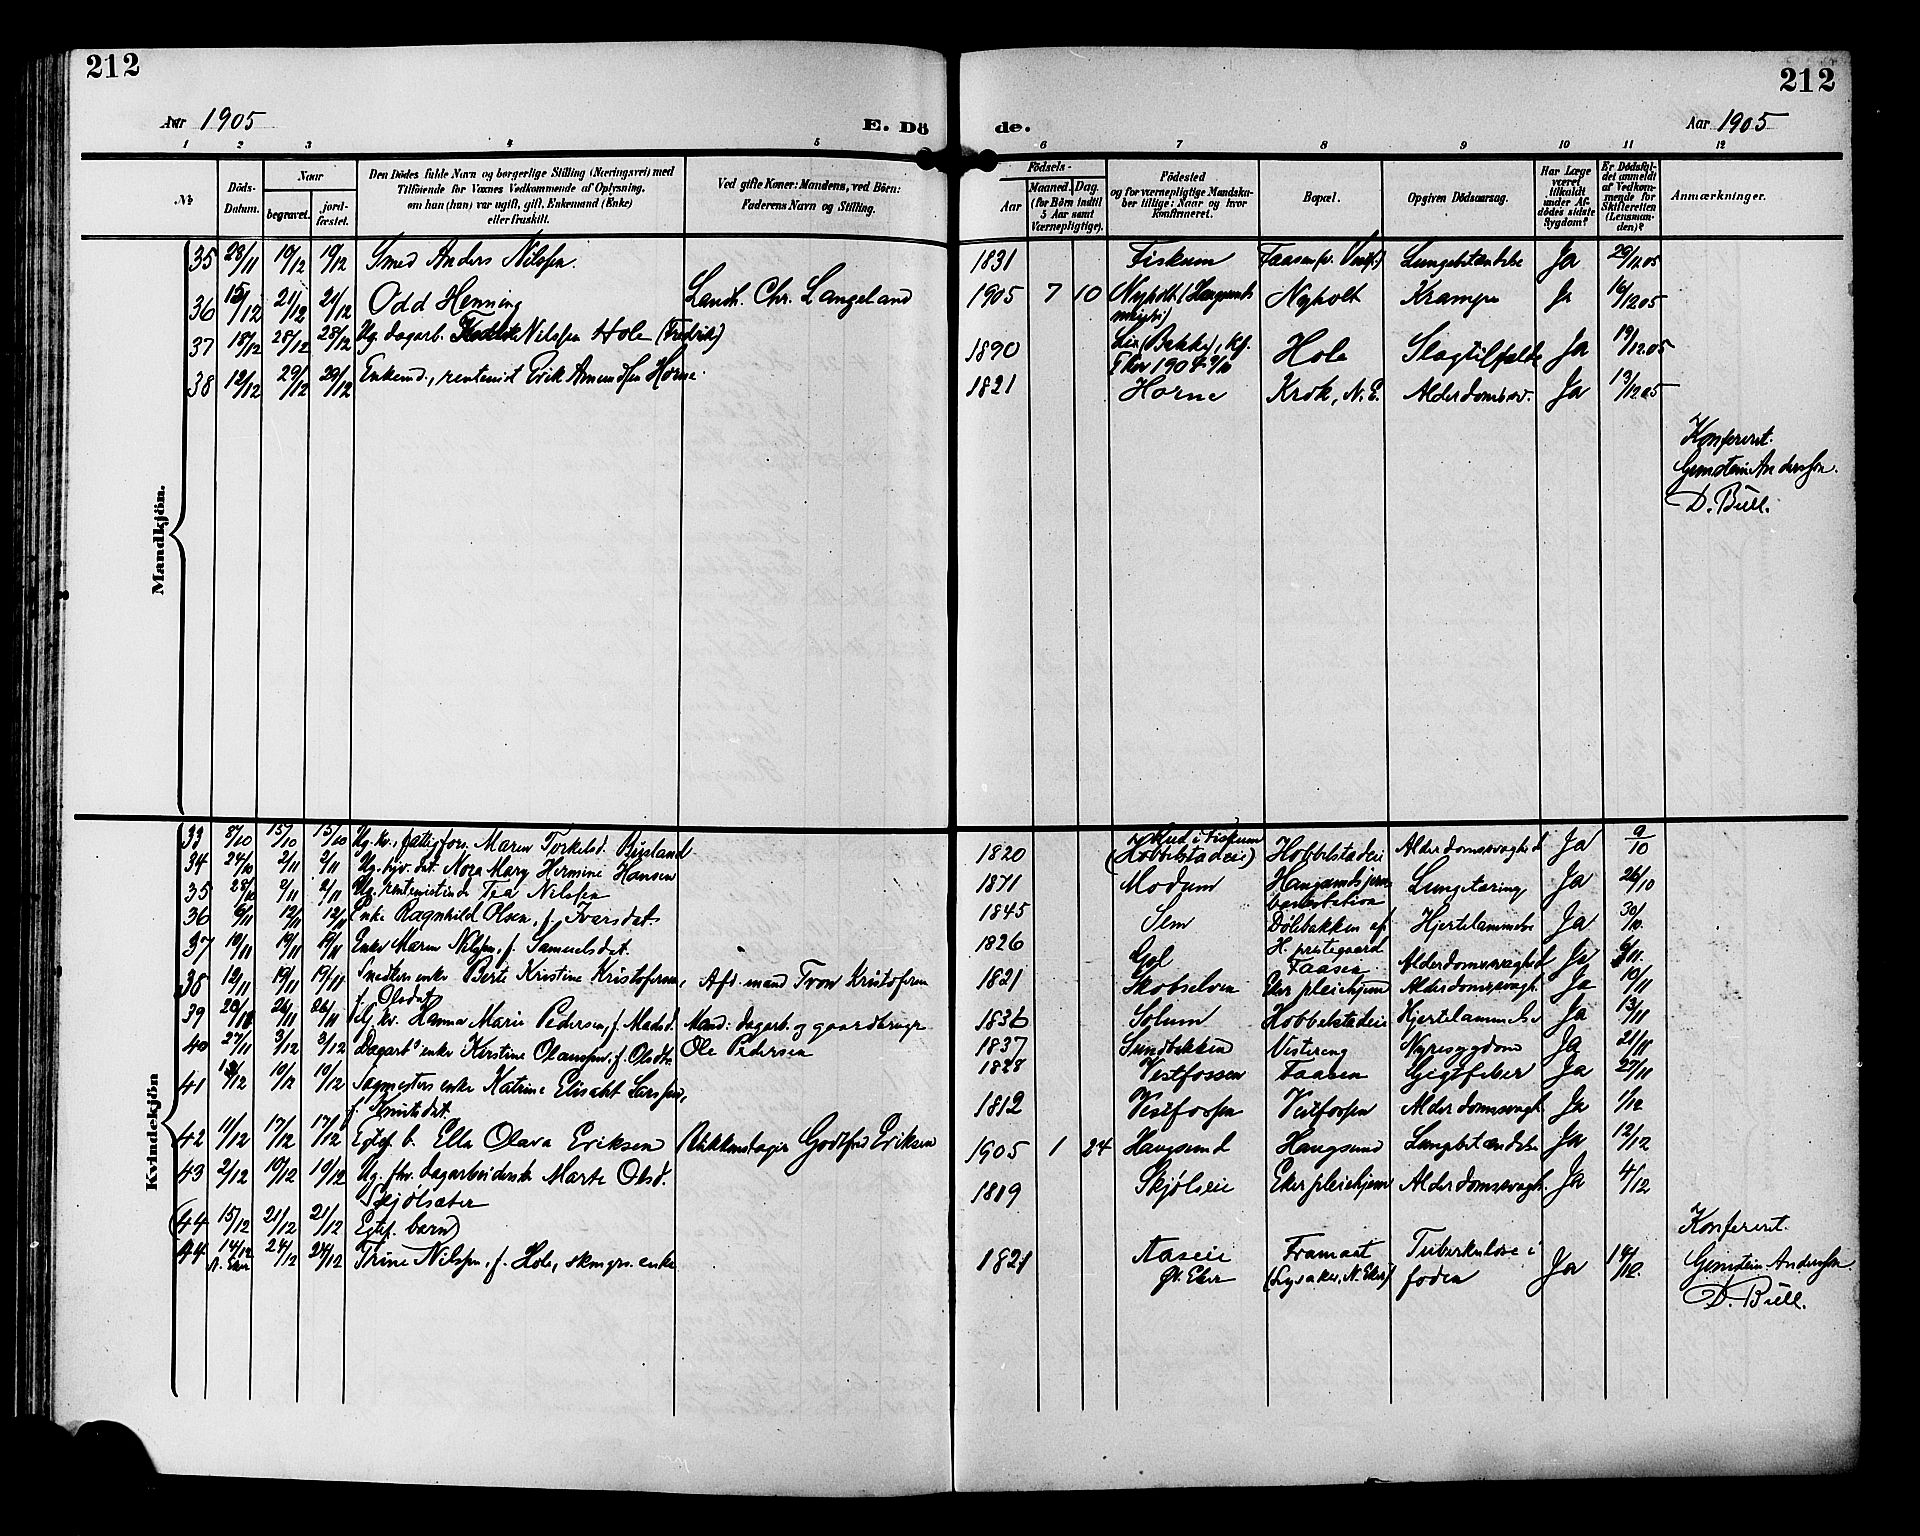 212
212
Aar 1905
E. Dö de.
Aar 1905
1 2 3 4 5 6 7 8 9 10 11 12
№
Döds-Datum.
Naar
begravet.
jord-fæstet.
Den Dödes fulde Navn og borgerlige Stilling (Næringsvei) med
Tilföiende for Voxnes Vedkommende af Oplysning.
om han (hun) var ugift, gift, Enkemand (Enke)
eller fraskilt.
Ved gifte Koner: Mandens, ved Börn:
Faderens Navn og Stilling.
Födsels-
Aar
Maaned. Dag.
(for Börn indtil
5 Aar samt
Værnepligtige).
Födested
og for værnepligtige Mandska-
ber tillige: Naar og hvor
Konfirmeret.
Bopæl.
Opgiven Dödsaarsag.
Har Læge
været
tilkaldt
under Af-
dödes sidste
Sygdom?
Er Dödsfal-
det anmeldt
af Vedkom-
mende for
Skifteretten
(Lensman-
den)?
Anmærkninger.
Mandkjön.
35 28/11 19/12 19/12 Smed Anders Nilssen. 1831 Fiskum Faasen Lungebetændelse Ja 29/11.05
36 15/12 21/12 21/12 Odd Henning Landh. Chr. Langeland 1905 7 10 Nyholt Nyholt Krampe Ja 16/12.05
37 18/12 28/12 28/12 Ug. dagarb. Nilssen Hole (Fredrik) 1890 Lier (Bakke), kf. Eker 1904 Hole Slagtilfælde Ja 19/12.05
38 12/12 29/12 29/12 Enkemd., rentenist Erik Amundsen Horne. 1821 Horne Krok, N.E. Alderdomssv. Ja 13/12.05
Konfereret.
Andersen.
D. Bull.
Kvindekjön
33 8/10 15/10 15/10 Ug. kv., fattigfors. Maren Torkelsd. Bigsland 1820 i Fiskum (Hobbelstadeie) Hobbelstadeie Alderdomssvaghed Ja 9/10
34 24/10 2/11 2/11 Ug. Nora Mary Hermine Hansen 1871 Modum Haugsunds jernbanestation Lungetæring Ja 26/10
35 28/10 2/11 2/11 Ug. rentenistinde Tea Nilssen 1845 Sem Dølebakken af H. prestegaard Hjertelammelse Ja 30/10.
36 6/11 12/11 12/11 Enke Ragnhild Olsen, f. Ivarsdat. 1826 Gol Faasen Alderdomssvaghed Ja 6/11.
37 10/11 19/11 19/11 Enke Maren Nilssen, f. Samuelsdat. 1821 Skotselven Eker pleiehjem Alderdomssvagh. Ja 10/11
38 12/11 19/11 19/11 Snedkers enke Berte Kristine Kristofersen, f. Olsdat. Afd. mand Tron Kristofersen 1836 Solum Hobbelstadeie Hjertelammelse Ja 13/11
39 20/11 26/11 26/11 kv. Hanna Marie Pedersen, f. Madsd. Mand: dagarb. og gaardbruger Ole Pedersen 1837 Sundbakken Vestereng Nyresygdom Ja 21/11
40 27/11 3/12 3/12 Dagarb.s enke Kerstine Olaussen, f. Olsdt. 1828 Vestfossen Faasen Gigtfeber Ja 27/11
41 /12 10/12 10/12 Sagmesters enke Katrine Elisabet Larssen, f. Knutsdat. 1812 Vestfossen Vestfossen Alderdomssvagh. Ja 1/12
42 11/12 17/12 17/12 Egtef. b. Ella Olava Eriksen Godtfred Eriksen 1905 1 24 Haugsund Haugsund Lungebetændelse Ja 12/12
43 2/12 10/12 10/12 Ug. fhv. dagarbeiderske Marte Olsd. Skjølsæter 1819 Skjølseie Eker pleiehjem Alderdomssvagh. Ja 4/12
(44 15/12 21/12 21/12 Egtef. barn)
44 14/12 N. Eker 24/12 24/12 Trine Nilssen, f. Hole, skmgrs. enke 1821 Aaseie Ø. Eker Framnæs (Lysaker, N. Eker) Tuberkulose i foden Ja 14/12.
Konfereret.
Andersen.
D. Bull.